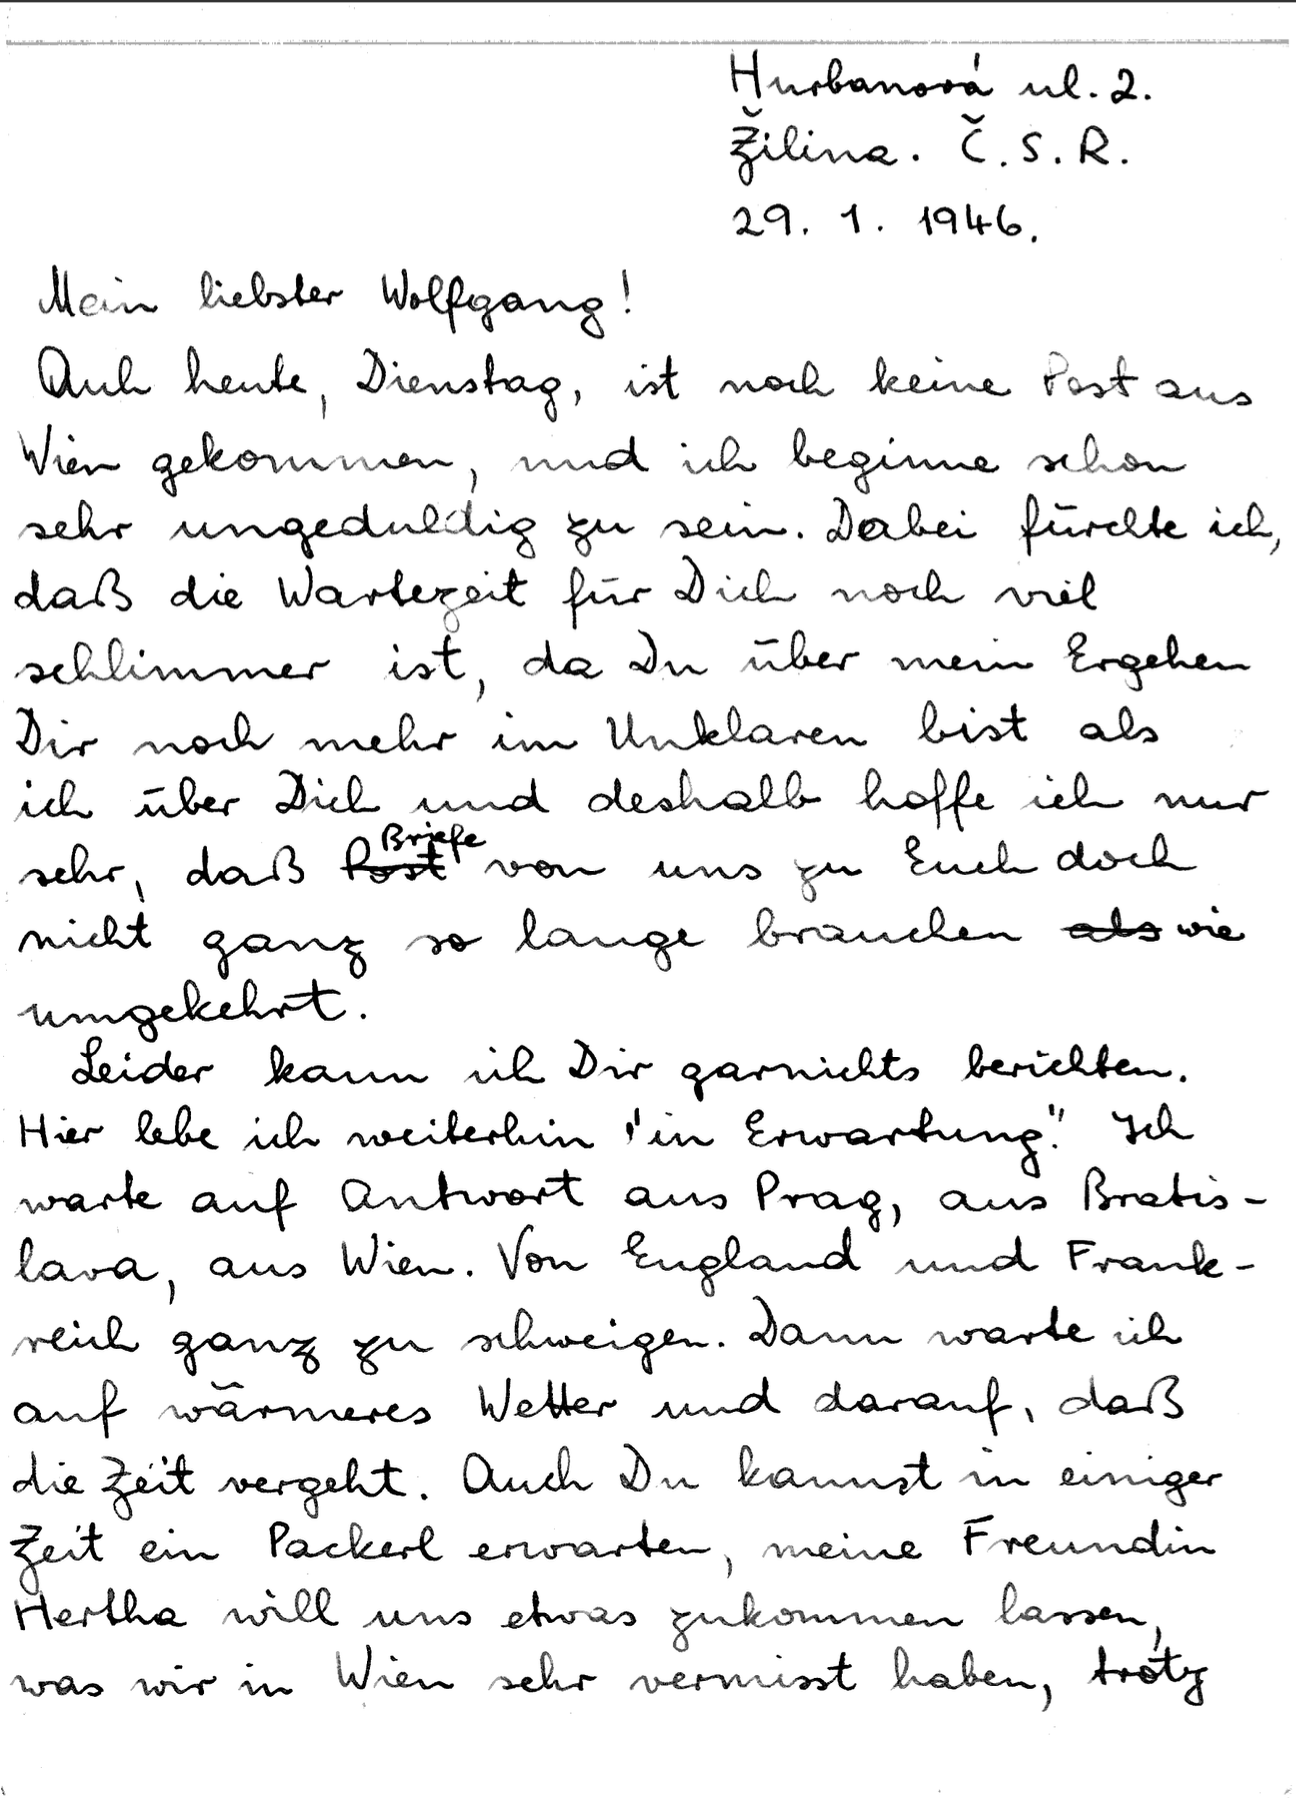 Hurbanová ul. 2.
Žilina. Č. S. R.
29. 1. 1946.
Mein liebster Wolfgang!
Auch heute, Dienstag, ist noch keine Post aus
Wien gekommen, und ich beginne schon
sehr ungeduldig zu sein. Dabei fürchte ich,
daß die Wartezeit für Dich noch viel
schlimmer ist, da Du über mein Ergehen
Dir noch mehr im Unklaren bist als
ich über Dich und deshalb hoffe ich nur
Briefe
sehr, daß Post von uns zu Euch doch
nicht ganz so lange brauchen als wie
umgekehrt.
Leider kann ich Dir garnichts berichten.
Hier lebe ich weiterhin "in Erwartung." Ich
warte auf Antwort aus Prag, aus Bratis-
lava, aus Wien. Von England und Frank-
reich ganz zu schweigen. Dann warte ich
auf wärmeres Wetter und darauf, daß
die Zeit vergeht. Auch Du kannst in einiger
Zeit ein Packerl erwarten, meine Freundin
Hertha will uns etwas zukommen lassen,
was wir in Wien sehr vermisst haben, trotz